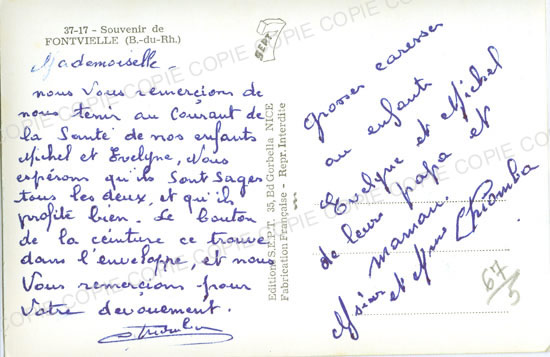 37-17 - Souvenir de
FONTVIELLE (B.-du-Rh.)
SEPT
Mademoiselle -
nous Vous remerçions de
nous tenir au Courant de
la Santé de nos enfants
Michel et Evelyne, Nous
espérons qu'ils Sont Sages
tous les deux, et qu'ils
profite bien. Le bouton
de la ceinture ce trouve
dans l'enveloppe, et nous
Vous remercions pour
Votre dévouement.
Editions S.E.P.T. 35, Bd Gorbella NICE
Fabrication Française - Repr. Interdite
grosses caresses
au enfants
Evelyne et Michel
de leurs papa et
maman.
Msieur et Mme
67
5
COPIE COPIE COPIE COPIE COPIE COPIE